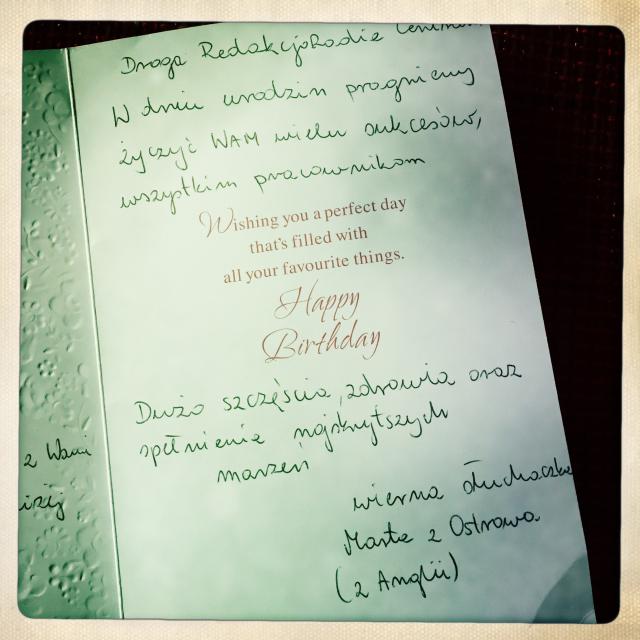 Droga Redakcjo Radia Centrum
W dniu urodzin pragniemy
życzyć WAM wielu sukcesów,
wszystkim pracownikom
Wishing you a perfect day
that's filled with
all your favourite things.
Happy
Birthday
Dużo szczęścia, zdrowia oraz
spełnienia najskrytszych
marzeń
z Wami
wierna słuchaczka
Marta z Ostrowa
(z Anglii)